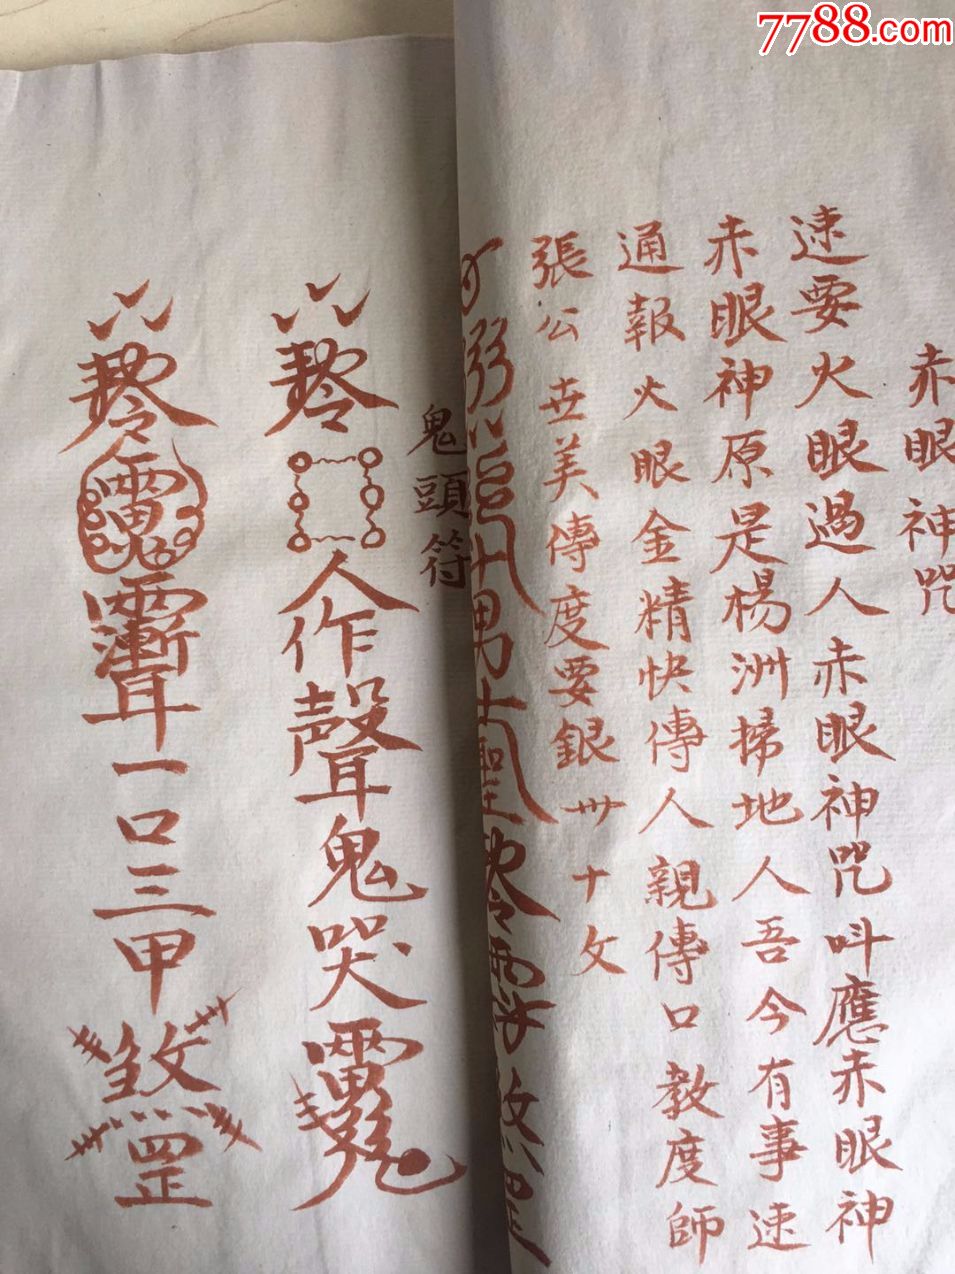 7788.com
赤眼神咒
速要火眼過人赤眼神咒叫應赤眼神
赤眼神原是楊洲掃地人吾今有事速
通報火眼金精快傳人親傳口教度師
張公世美傳度要銀卅十文
鬼頭符
人作聲鬼哭
一口三甲
煞罡